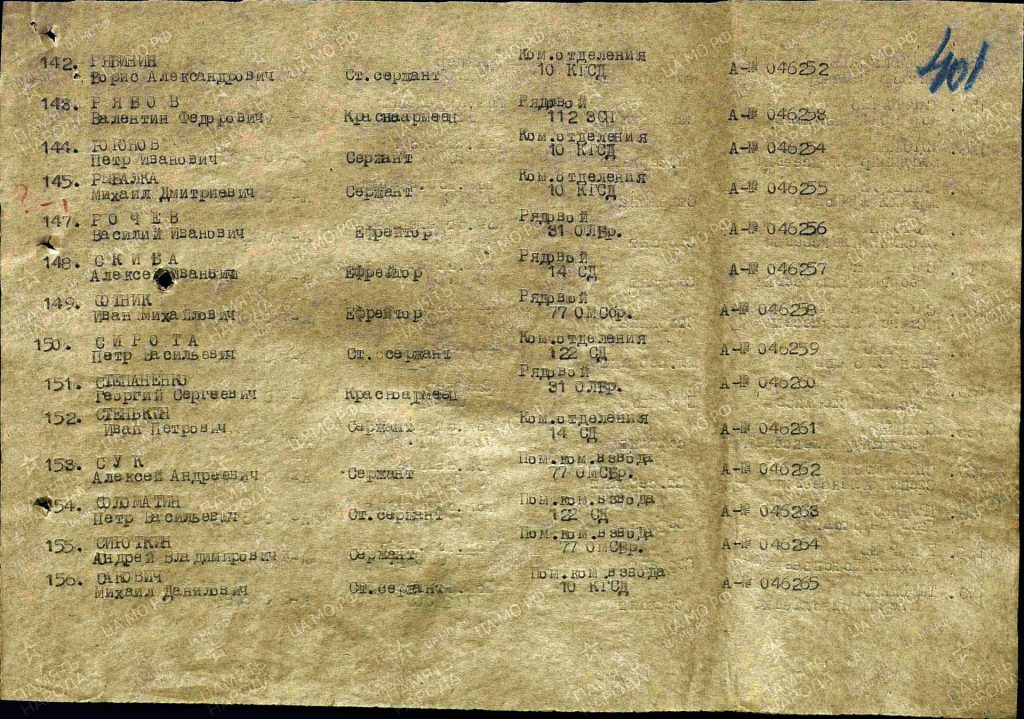 401
142. РЯБИНИН Ком.отделения
Борис Александрович Ст.сержант 10 КГСД А-№ 046252
143. Р Я Б О В Рядовой
Валентин Федорович Красноармеец 112 ЗСП А-№ 046253
144. Ком.отделения
Петр Иванович Сержант 10 КГСД А-№ 046254
145. РЫБАЛКА Ком.отделения
Михаил Дмитриевич Сержант 10 КГСД А-№ 046255
? -1
147. Р О Ч Е В Рядовой
Василий Иванович Ефрейтор 31 ОЛБр. А-№ 046256
148. С К И Б А Рядовой
Алексей Иванович Ефрейтор 14 СД А-№ 046257
149. Рядовой
Иван Михайлович Ефрейтор 77 ОМСбр. А-№ 046258
150. С И Р О Т А Ком.отделения
Петр Васильевич Ст. сержант 122 СД А-№ 046259
151. СТЕПАНЕНКО Рядовой
Георгий Сергеевич Красноармеец 31 ОЛБр. А-№ 046260
152. СТЕНЬКИН Ком.отделения
Иван Петрович Сержант 14 СД А-№ 046261
153. С У К Пом.ком.взвода
Алексей Андреевич Сержант 77 ОМСБр. А-№ 046262
154. СОЛОМАТИН Пом.ком.взвода
Петр Васильевич Ст.сержант 122 СД А-№ 046263
155. СИРОТКИН Пом.ком.взвода
Андрей Владимирович Сержант 77 ОМСБр. А-№ 046264
156. САКОВИЧ Пом.ком.взвода
Михаил Данилович Ст.сержант 10 КГСД А-№ 046265